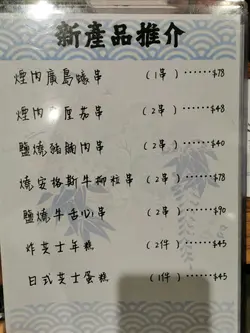 新產品推介
煙肉廣島蠔串 (1串) ……$78
煙肉車厘茄串 (2串) ……$48
鹽燒豬腩肉串 (2串) ……$40
燒安格斯牛柳粒串 (2串) ……$78
鹽燒牛舌心串 (2串) ……$90
炸芝士年糕 (2件) ……$45
日式芝士蛋糕 (1件) ……$45